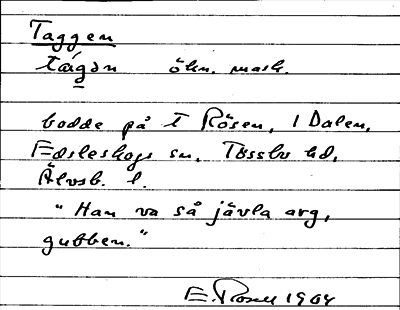 Taggen
tágən ökn. mask.
bodde på T Rösen, 1 Dalen,
Edsleskogs sn, Tössbo hd,
Älvsb. l.
"Han va så jävla arg,
gubben."
E. Rosell 1964